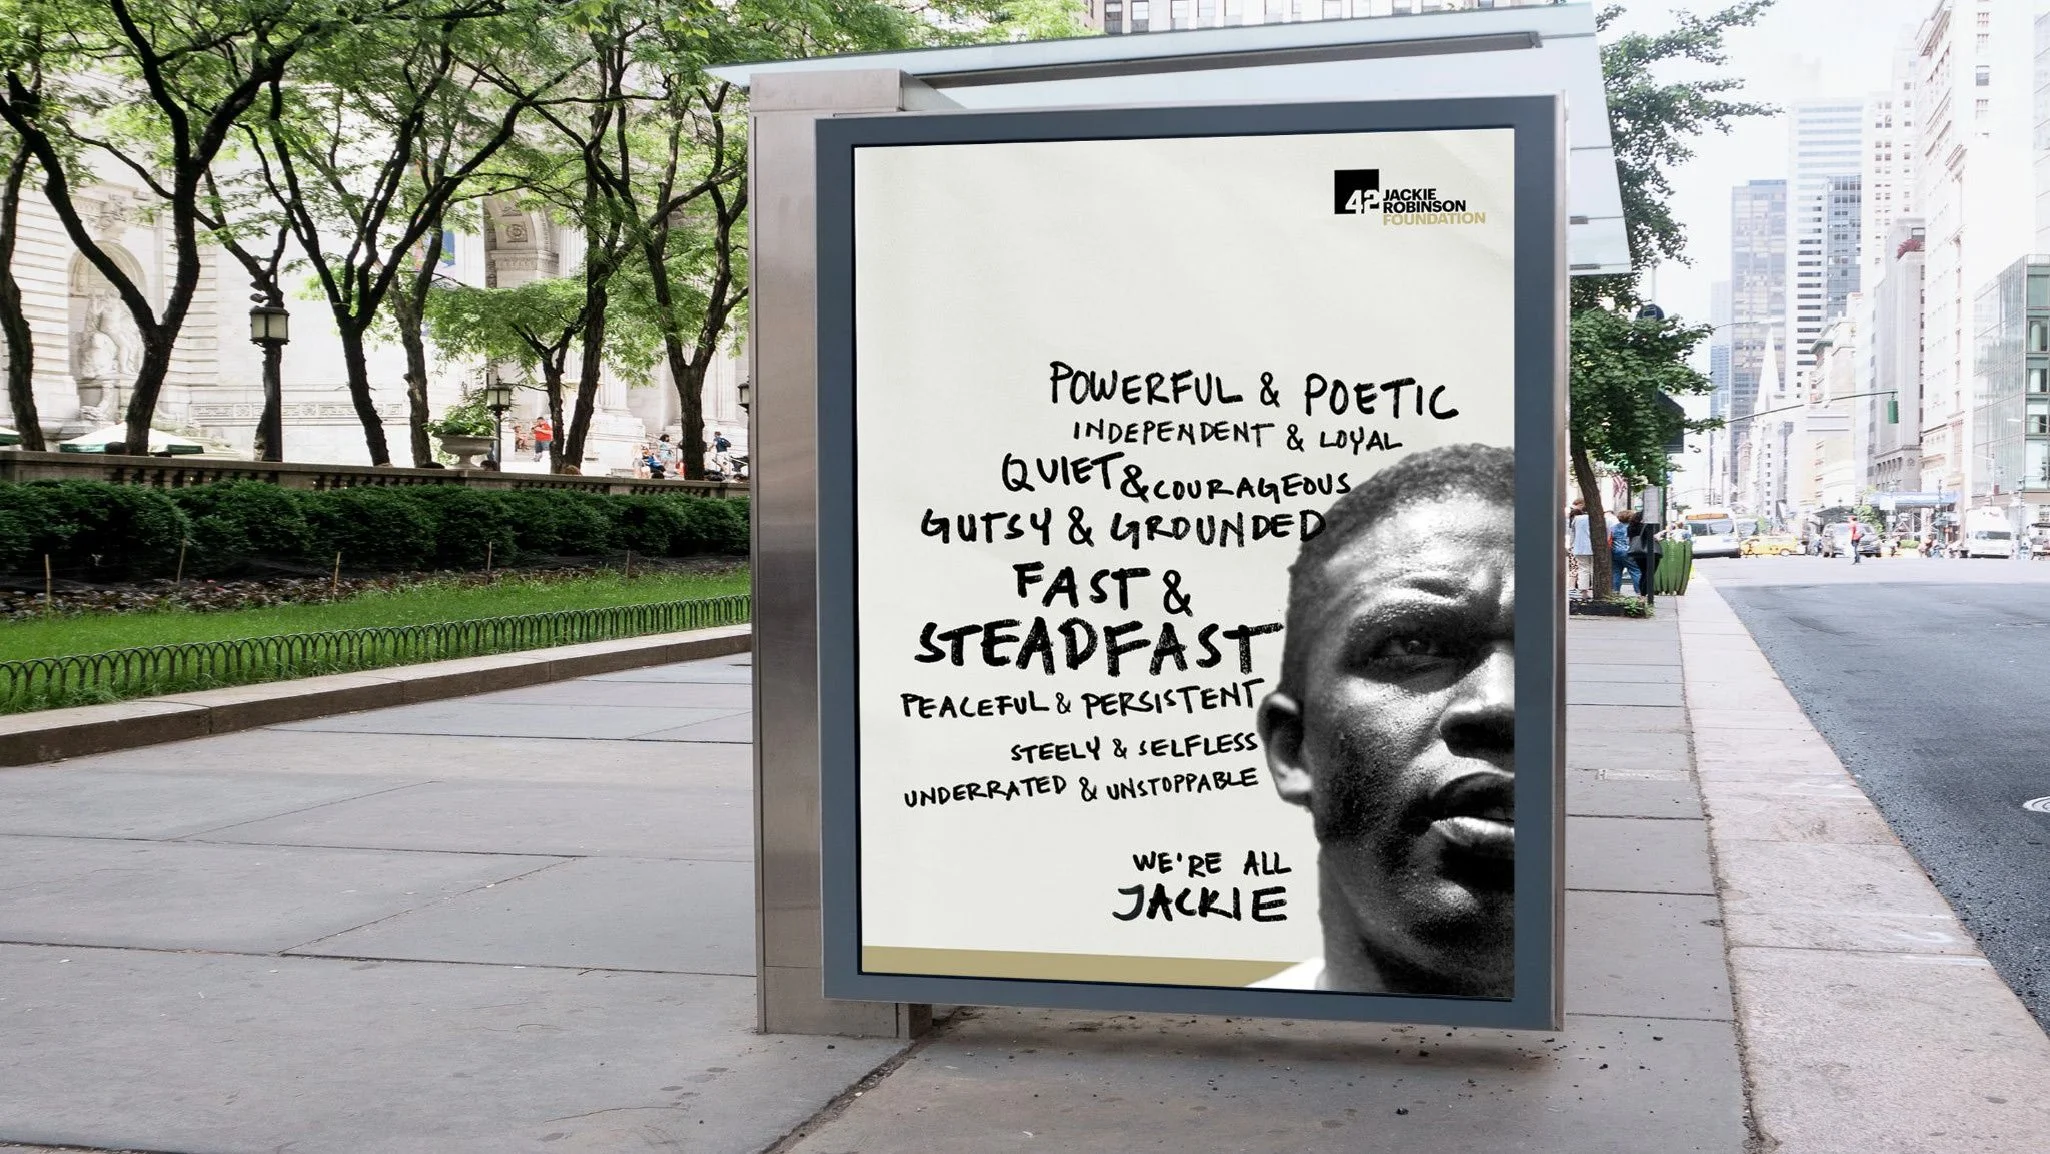 42 JACKIE
ROBINSON
FOUNDATION
POWERFUL & POETIC
INDEPENDENT & LOYAL
QUIET & COURAGEOUS
GUTSY & GROUNDED
FAST &
STEADFAST
PEACEFUL & PERSISTENT
STEELY & SELFLESS
UNDERRATED & UNSTOPPABLE
WE'RE ALL
JACKIE